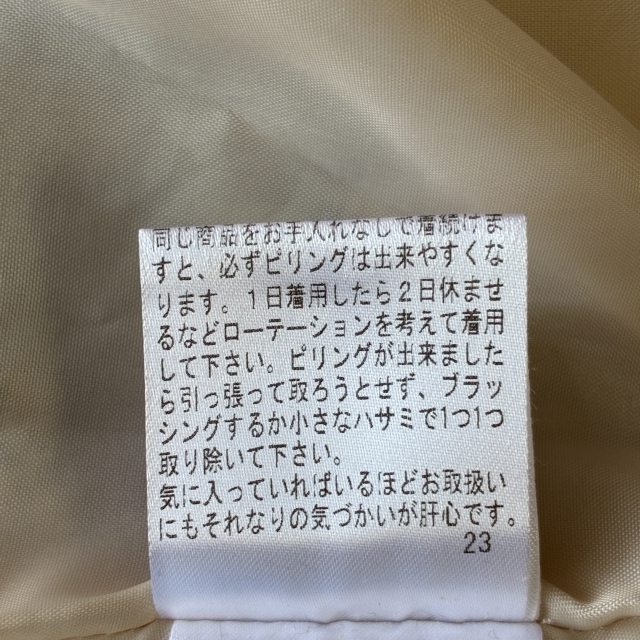 同じ商品をお手入れなしで着続けま
すと、必ずピリングは出来やすくな
ります。1日着用したら2日休ませ
るなどローテーションを考えて着用
して下さい。ピリングが出来ました
ら引っ張って取ろうとせず、ブラッ
シングするか小さなハサミで1つ1つ
取り除いて下さい。
気に入っていればいるほどお取扱い
にもそれなりの気づかいが肝心です。
23